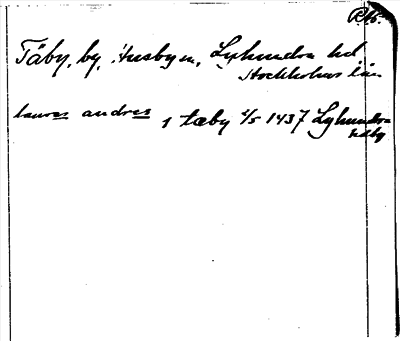 Rb.
Täby, by, Husby sn, Lyhundra hd
Stockholms län
laures andres
i tæby 2/5 1437 Lyhundra
hdbg